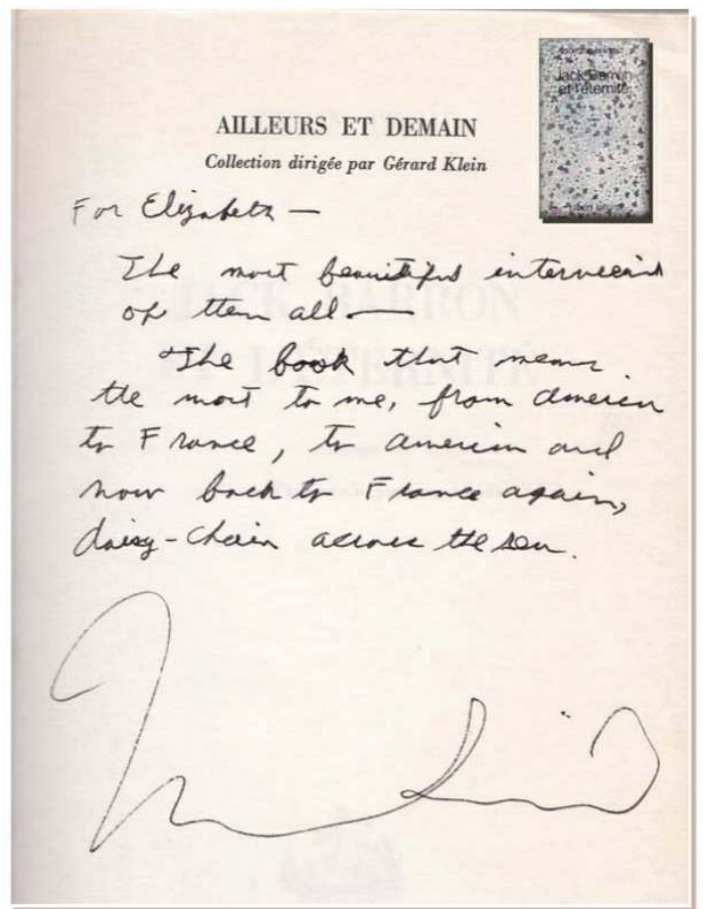 AILLEURS ET DEMAIN
Collection dirigée par Gérard Klein
Jack Barron
et l'éternité
For Elizabeth —
The most beautiful
of them all —
The book that means
the most to me, from America
to France, to America and
now back to France again,
daisy-chain across the sea.
JACK BARRON
ET L'ÉTERNITÉ